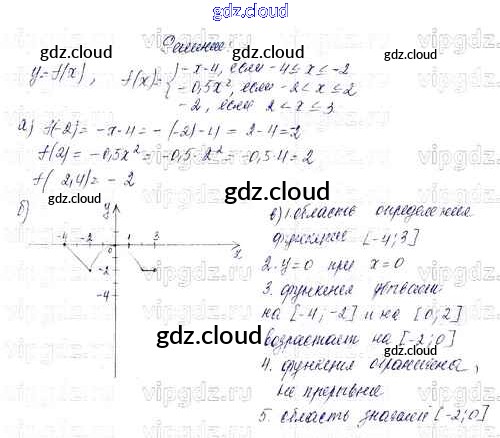 gdz.cloud
Решение:
y=f(x), f(x)= { -x-4, если -4≤x≤-2
-0,5x², если -2<x≤2
-2, если 2<x≤3
а) f(-2)= -x-4 = -(-2)-4 = 2-4=2
f(2)= -0,5x² = -0,5·2² = -0,5·4=2
f( 2,4)= -2
б)
y
-4 -2 0 1 3 x
-2
-4
в) 1. область определения
функции [-4;3]
2. y=0 при x=0
3. функция убывает
на [-4;-2] и на [0;2]
возрастает на [-2;0]
4. функция ограничена,
непрерывна
5. область значений [-2;0]
gdz.cloud
gdz.cloud
gdz.cloud
gdz.cloud
gdz.cloud
gdz.cloud
vipgdz.ru